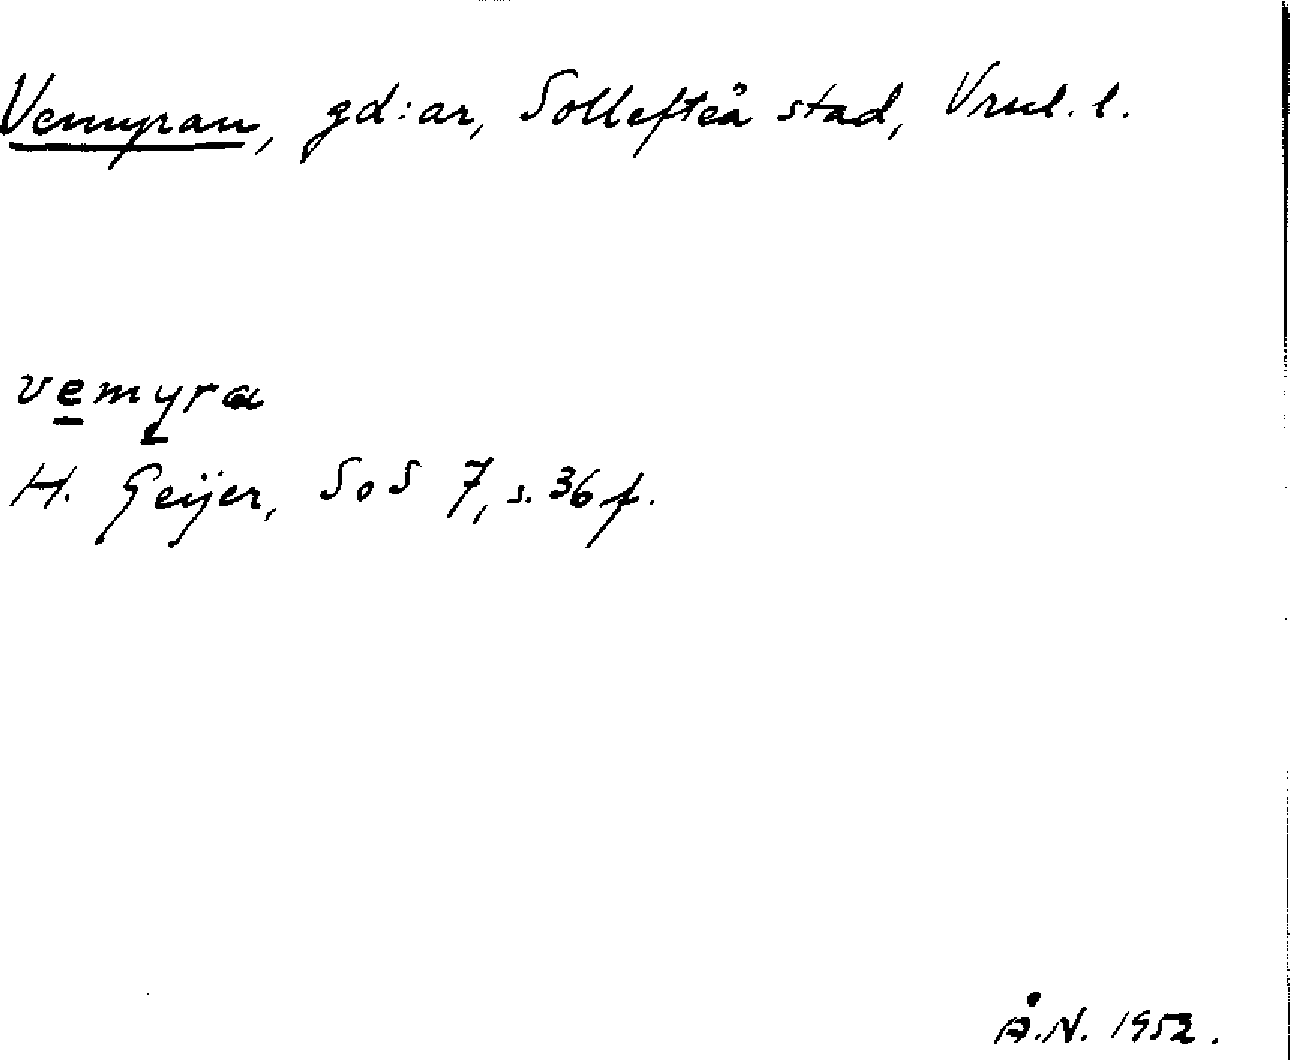 Vemyran, gd:ar, Sollefteå stad, Vrnl. l.
vemyra
H. Geijer, SoS 7, s. 36 f.
Å.N. 1952.